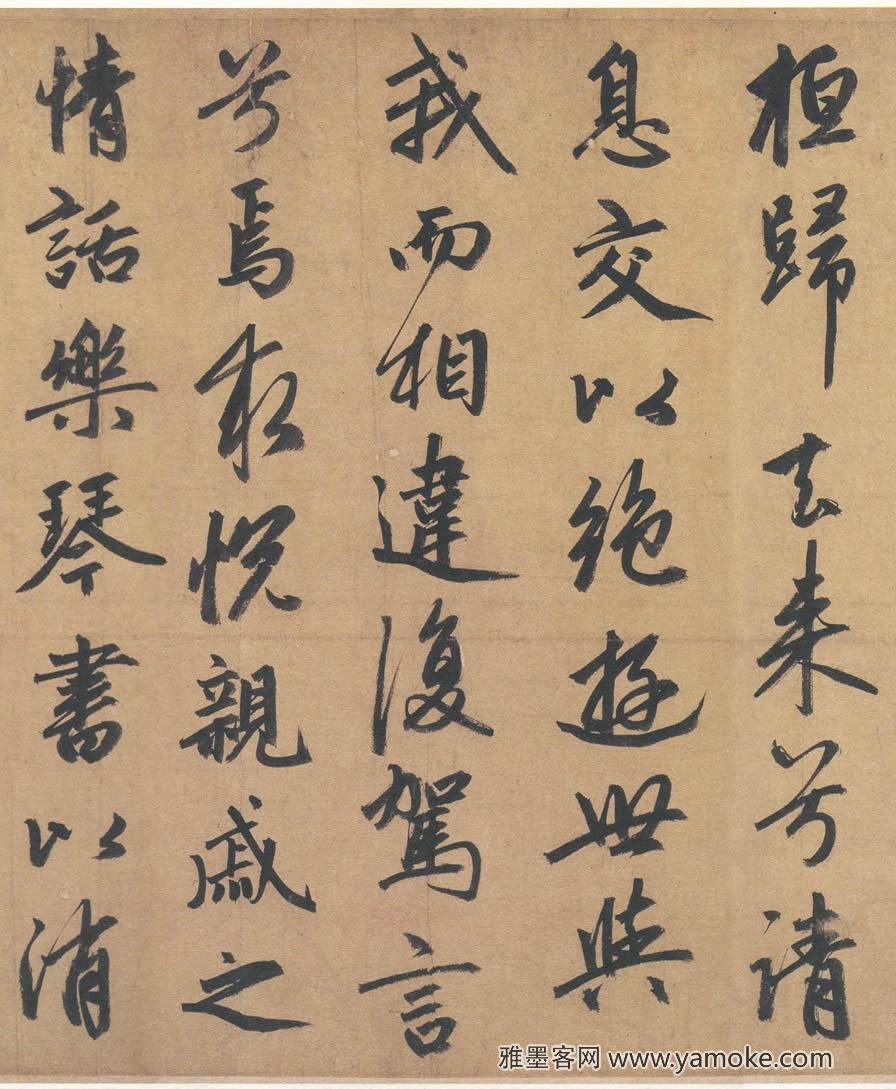 桓歸去来兮請
息交以絶遊世與
我而相違復駕言
兮焉求悦親戚之
情話樂琴書以消
雅墨客网 www.yamoke.com